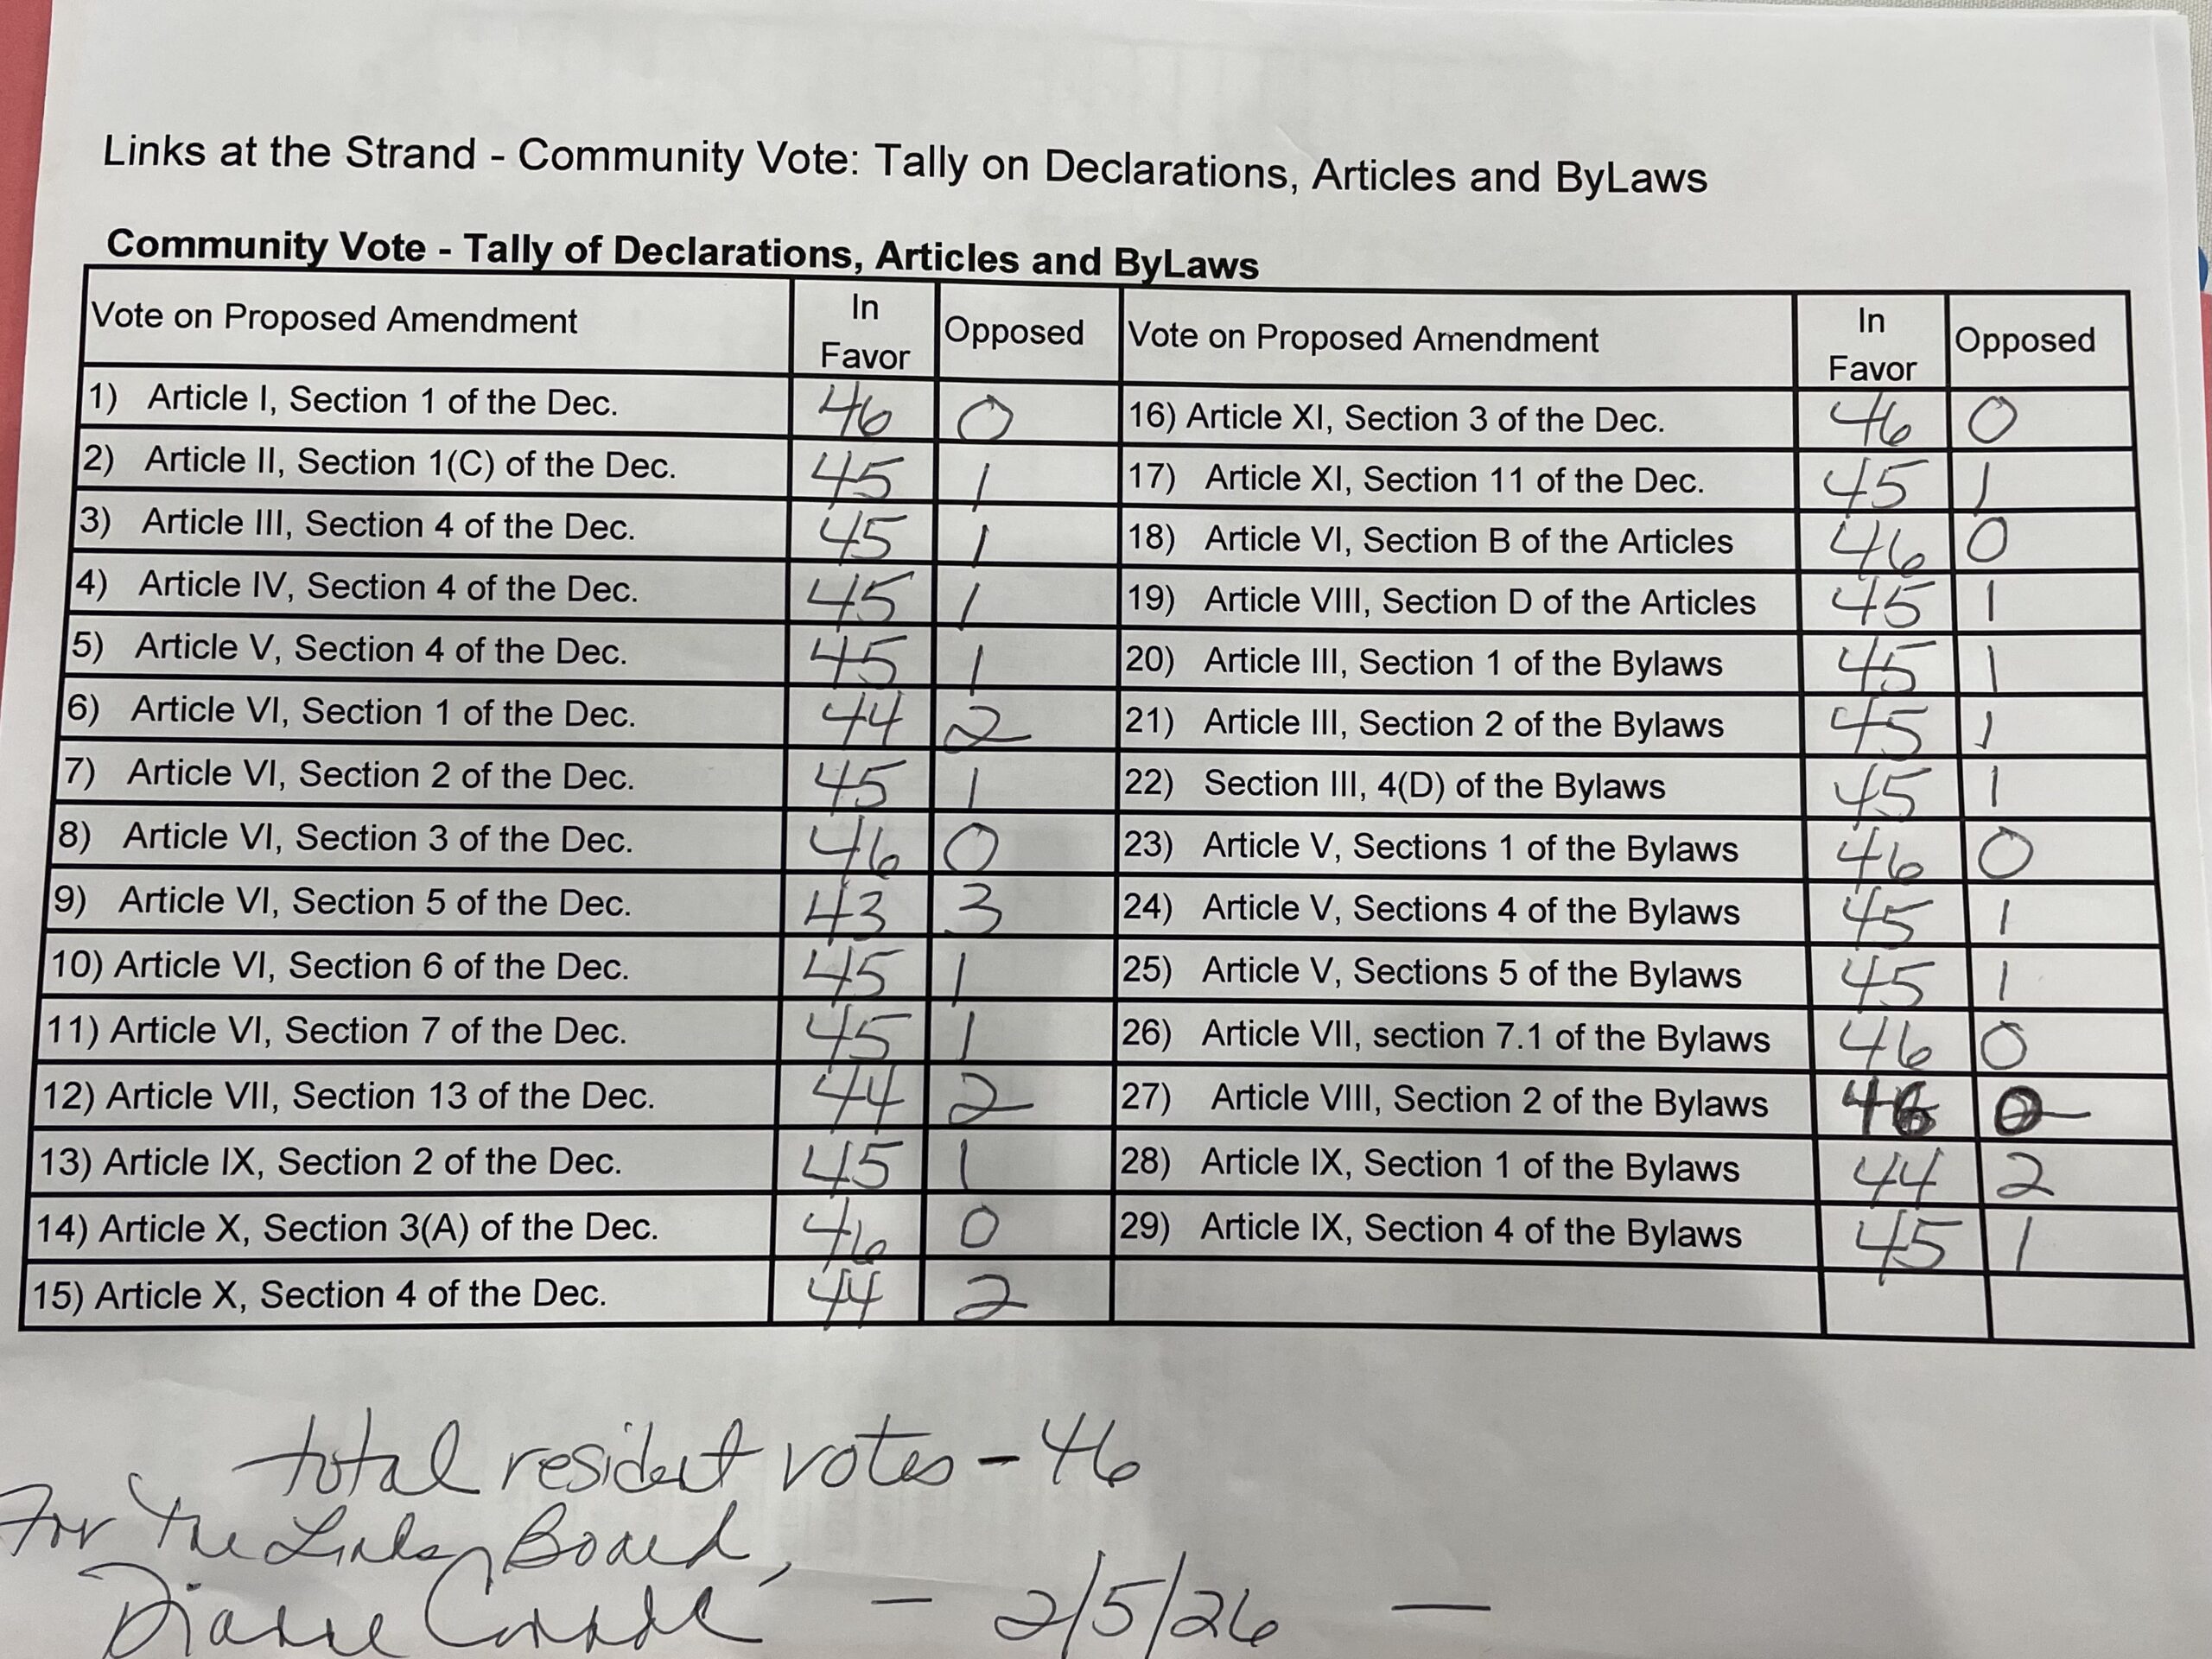 Links at the Strand - Community Vote: Tally on Declarations, Articles and ByLaws
Community Vote - Tally of Declarations, Articles and ByLaws
Vote on Proposed Amendment In Favor Opposed Vote on Proposed Amendment In Favor Opposed
1) Article I, Section 1 of the Dec. 46 0 16) Article XI, Section 3 of the Dec. 46 0
2) Article II, Section 1(C) of the Dec. 45 1 17) Article XI, Section 11 of the Dec. 45 1
3) Article III, Section 4 of the Dec. 45 1 18) Article VI, Section B of the Articles 46 0
4) Article IV, Section 4 of the Dec. 45 1 19) Article VIII, Section D of the Articles 45 1
5) Article V, Section 4 of the Dec. 45 1 20) Article III, Section 1 of the Bylaws 45 1
6) Article VI, Section 1 of the Dec. 44 2 21) Article III, Section 2 of the Bylaws 45 1
7) Article VI, Section 2 of the Dec. 45 1 22) Section III, 4(D) of the Bylaws 45 1
8) Article VI, Section 3 of the Dec. 46 0 23) Article V, Sections 1 of the Bylaws 46 0
9) Article VI, Section 5 of the Dec. 43 3 24) Article V, Sections 4 of the Bylaws 45 1
10) Article VI, Section 6 of the Dec. 45 1 25) Article V, Sections 5 of the Bylaws 45 1
11) Article VI, Section 7 of the Dec. 45 1 26) Article VII, section 7.1 of the Bylaws 46 0
12) Article VII, Section 13 of the Dec. 44 2 27) Article VIII, Section 2 of the Bylaws 46 0
13) Article IX, Section 2 of the Dec. 45 1 28) Article IX, Section 1 of the Bylaws 44 2
14) Article X, Section 3(A) of the Dec. 46 0 29) Article IX, Section 4 of the Bylaws 45 1
15) Article X, Section 4 of the Dec. 44 2
total resident votes - 46
For The Links Board,
Diane - 2/5/26 -